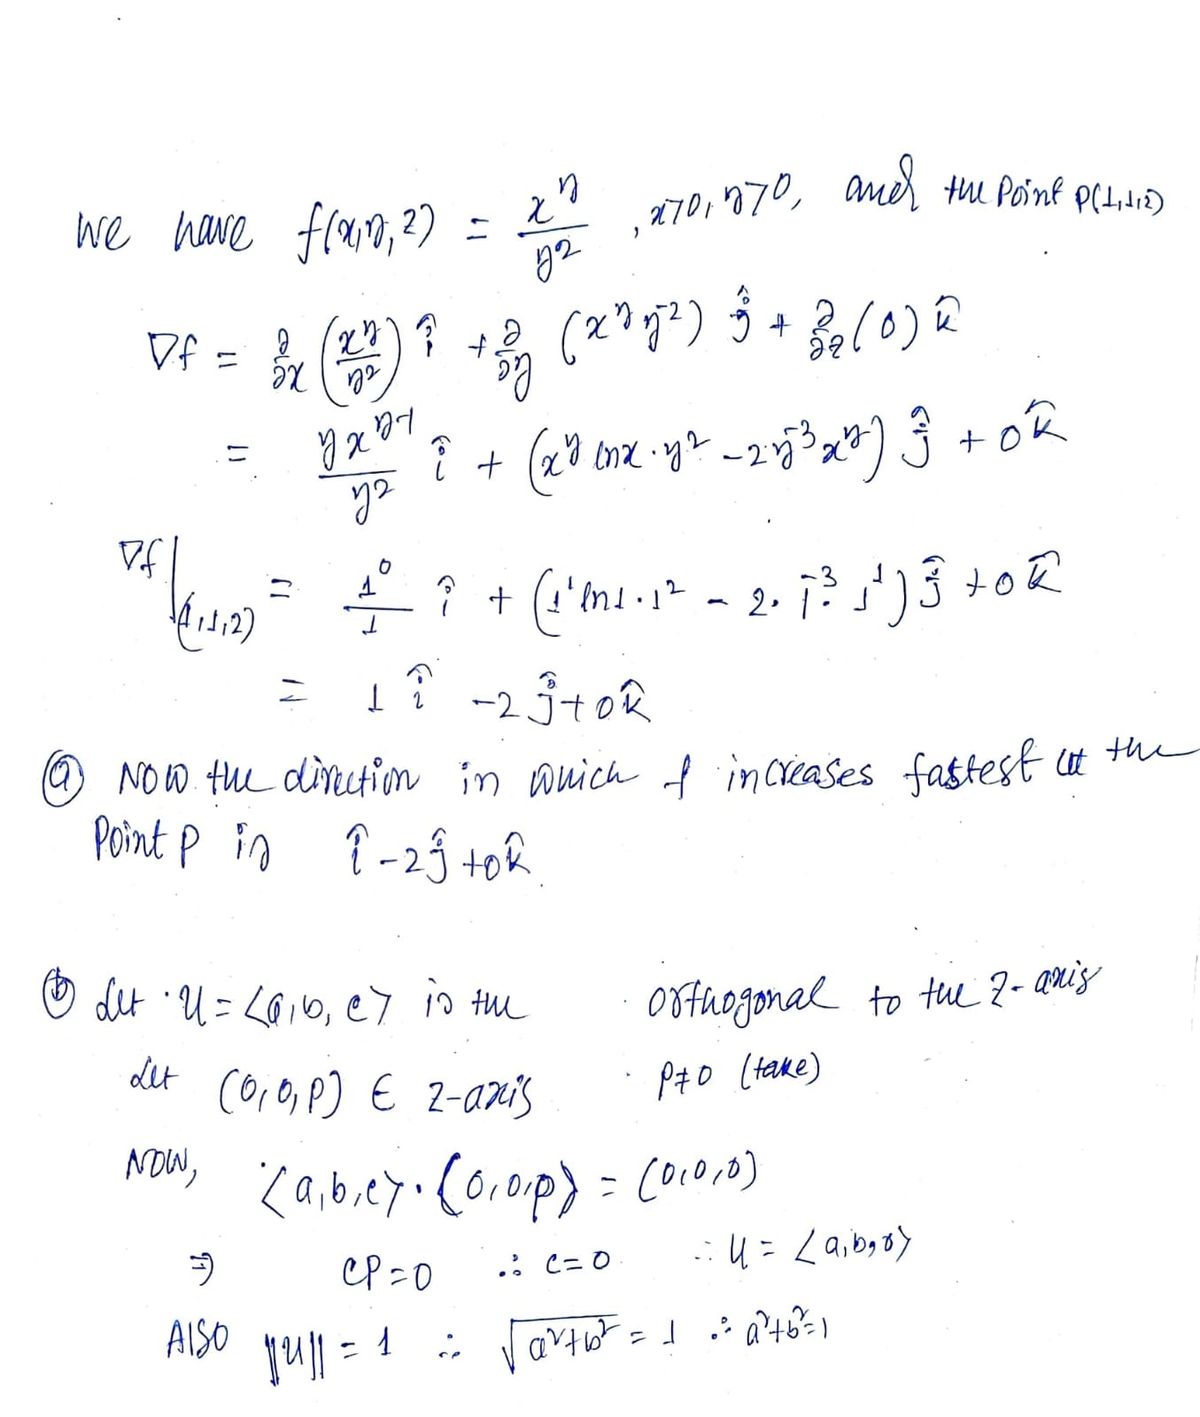 we have f(x,y,z) = x^y / y^2 , x>0, y>0, and the Point P(1,1,2)
∇f = ∂/∂x (x^y / y^2) î + ∂/∂y (x^y y^-2) ĵ + ∂/∂z (0) k̂
= y x^(y-1) / y^2 î + (x^y lnx · y^2 - 2 y^-3 x^y) ĵ + 0 k̂
∇f|(1,1,2) = 1^0 / 1 î + (1^1 ln1 · 1^2 - 2 · 1^-3 · 1^1) ĵ + 0 k̂
= 1 î - 2 ĵ + 0 k̂
(a) Now the direction in which f increases fastest at the
Point P is î - 2 ĵ + 0 k̂.
(b) Let u = <a, b, c> is the orthogonal to the z-axis
Let (0, 0, P) ∈ z-axis P≠0 (take)
Now, <a, b, c> · <0, 0, p> = (0, 0, 0)
⇒ cP = 0 ∴ c = 0 ∴ u = <a, b, 0>
Also ||u|| = 1 ∴ √(a²+b²) = 1 ∴ a²+b²=1